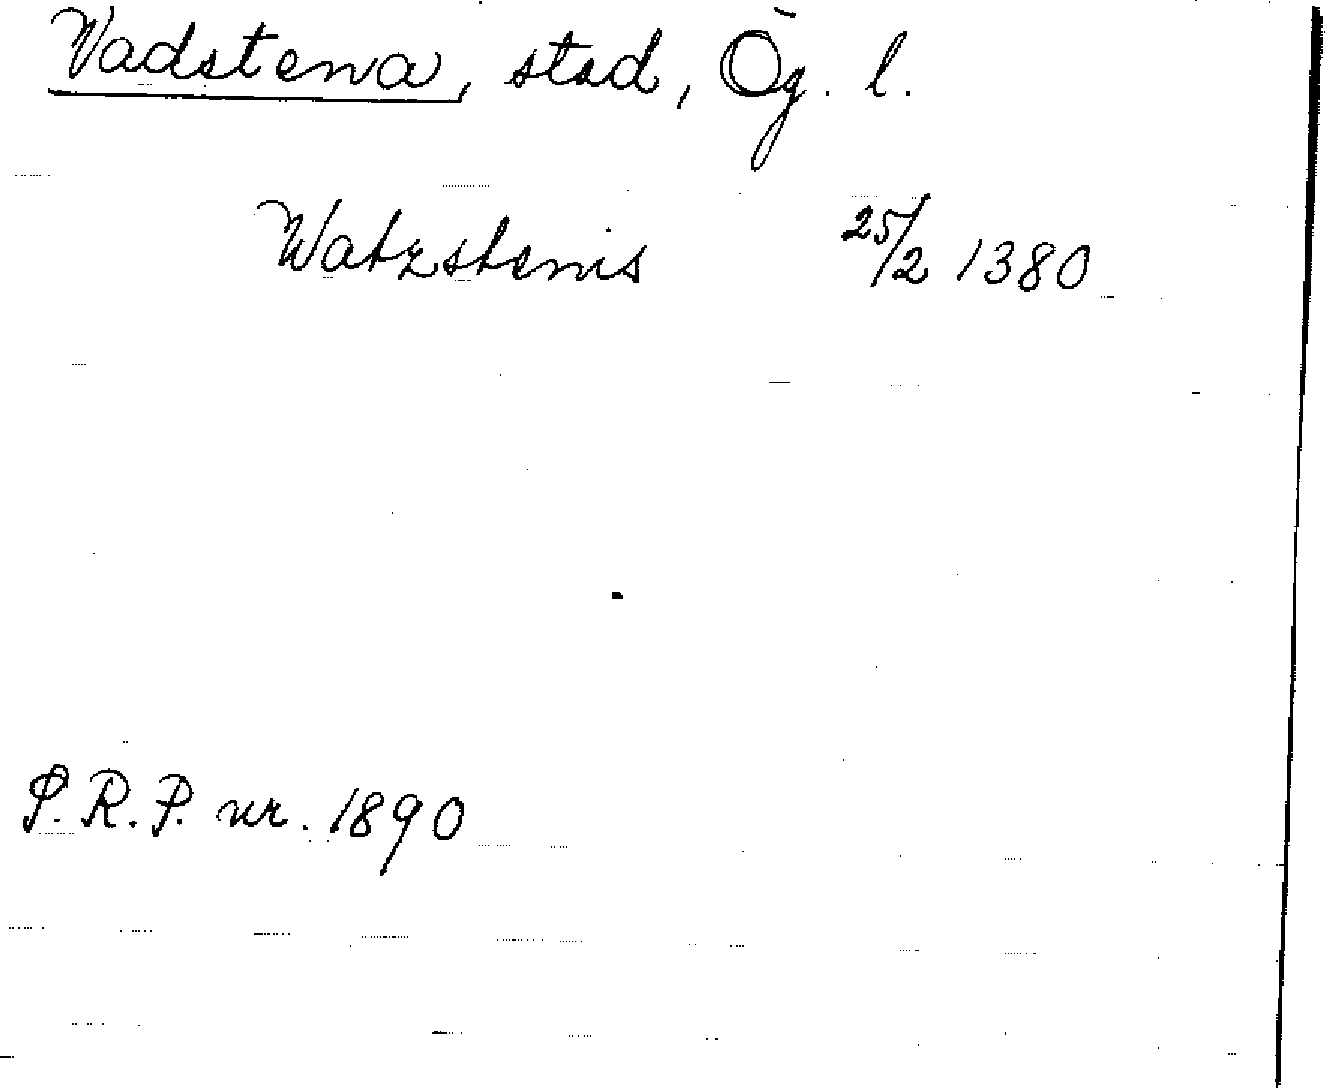 Vadstena, stad, Ög. l.
Watzstenis 25/2 1380
S.R.P. nr. 1890